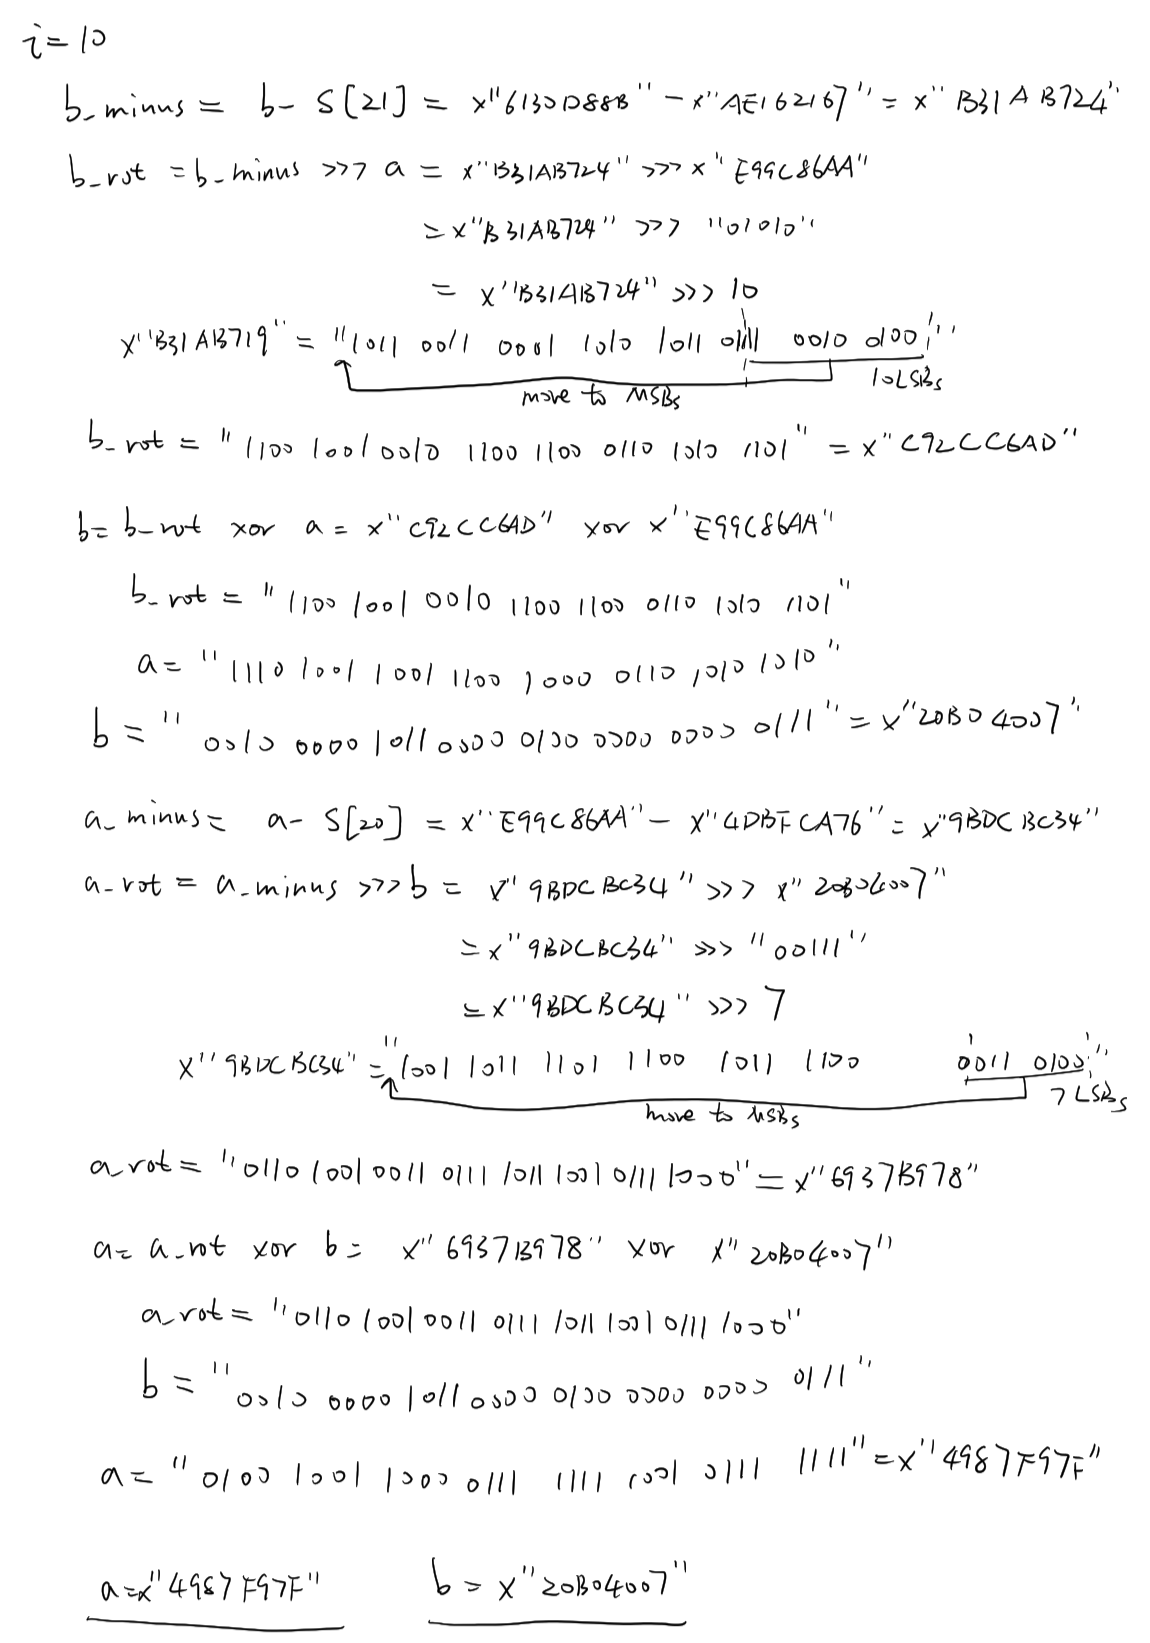 i=10
b_minus = b- S[21] = x"6130D88B" - x"AE162167" = x"B31AB724"
b_rot = b_minus >>> a = x"B31AB724" >>> x"E99C86AA"
= x"B31AB724" >>> "01010"
= x"B31AB724" >>> 10
x"B31AB719" = "1011 0011 0001 1010 1011 0111 0010 0100"
move to MSBs 10LSBs
b_rot = "1100 1001 0010 1100 1100 0110 1010 1101" = x"C92CC6AD"
b= b_rot xor a = x"C92CC6AD" xor x"E99C86AA"
b_rot = "1100 1001 0010 1100 1100 0110 1010 1101"
a= "1110 1001 1001 1100 1000 0110 1010 1010"
b = "0010 0000 1011 0000 0100 0000 0000 0111" = x"20B04007"
a_minus = a- S[20] = x"E99C86AA" - x"4DBFCA76" = x"9BDCBC34"
a_rot = a_minus >>> b = x"9BDCBC34" >>> x"20B04007"
= x"9BDCBC34" >>> "00111"
= x"9BDCBC34" >>> 7
x"9BDCBC34" = "1001 1011 1101 1100 1011 1100 0011 0100"
move to MSBs 7 LSBs
a_rot = "0110 1001 0011 0111 1011 1001 0111 1000" = x"6937B978"
a= a_rot xor b = x"6937B978" xor x"20B04007"
a_rot = "0110 1001 0011 0111 1011 1001 0111 1000"
b = "0010 0000 1011 0000 0100 0000 0000 0111"
a= "0100 1001 1000 0111 1111 1001 0111 1111" = x"4987F97F"
a=x"4987F97F" b = x"20B04007"